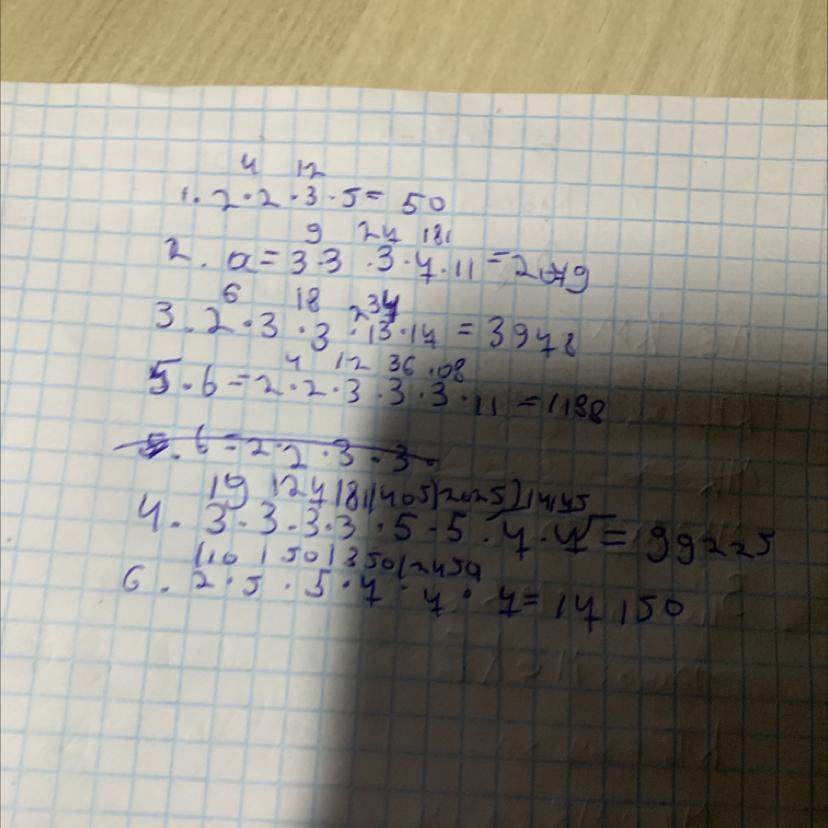 4 12
1. 2·2·3·5= 50
9 27 181
2. a=3·3·3·7·11=2079
6 18 234
3. 2·3·3·13·17=3978
4 12 36 108
5. 6=2·2·3·3·3·11=1188
5. 6=2·2·3·3·
19 127 181 1405 12025 14175
4. 3·3·3·3·5·5·7·7=99225
110 150 1350 12450
6. 2·5·5·7·7·7=17150